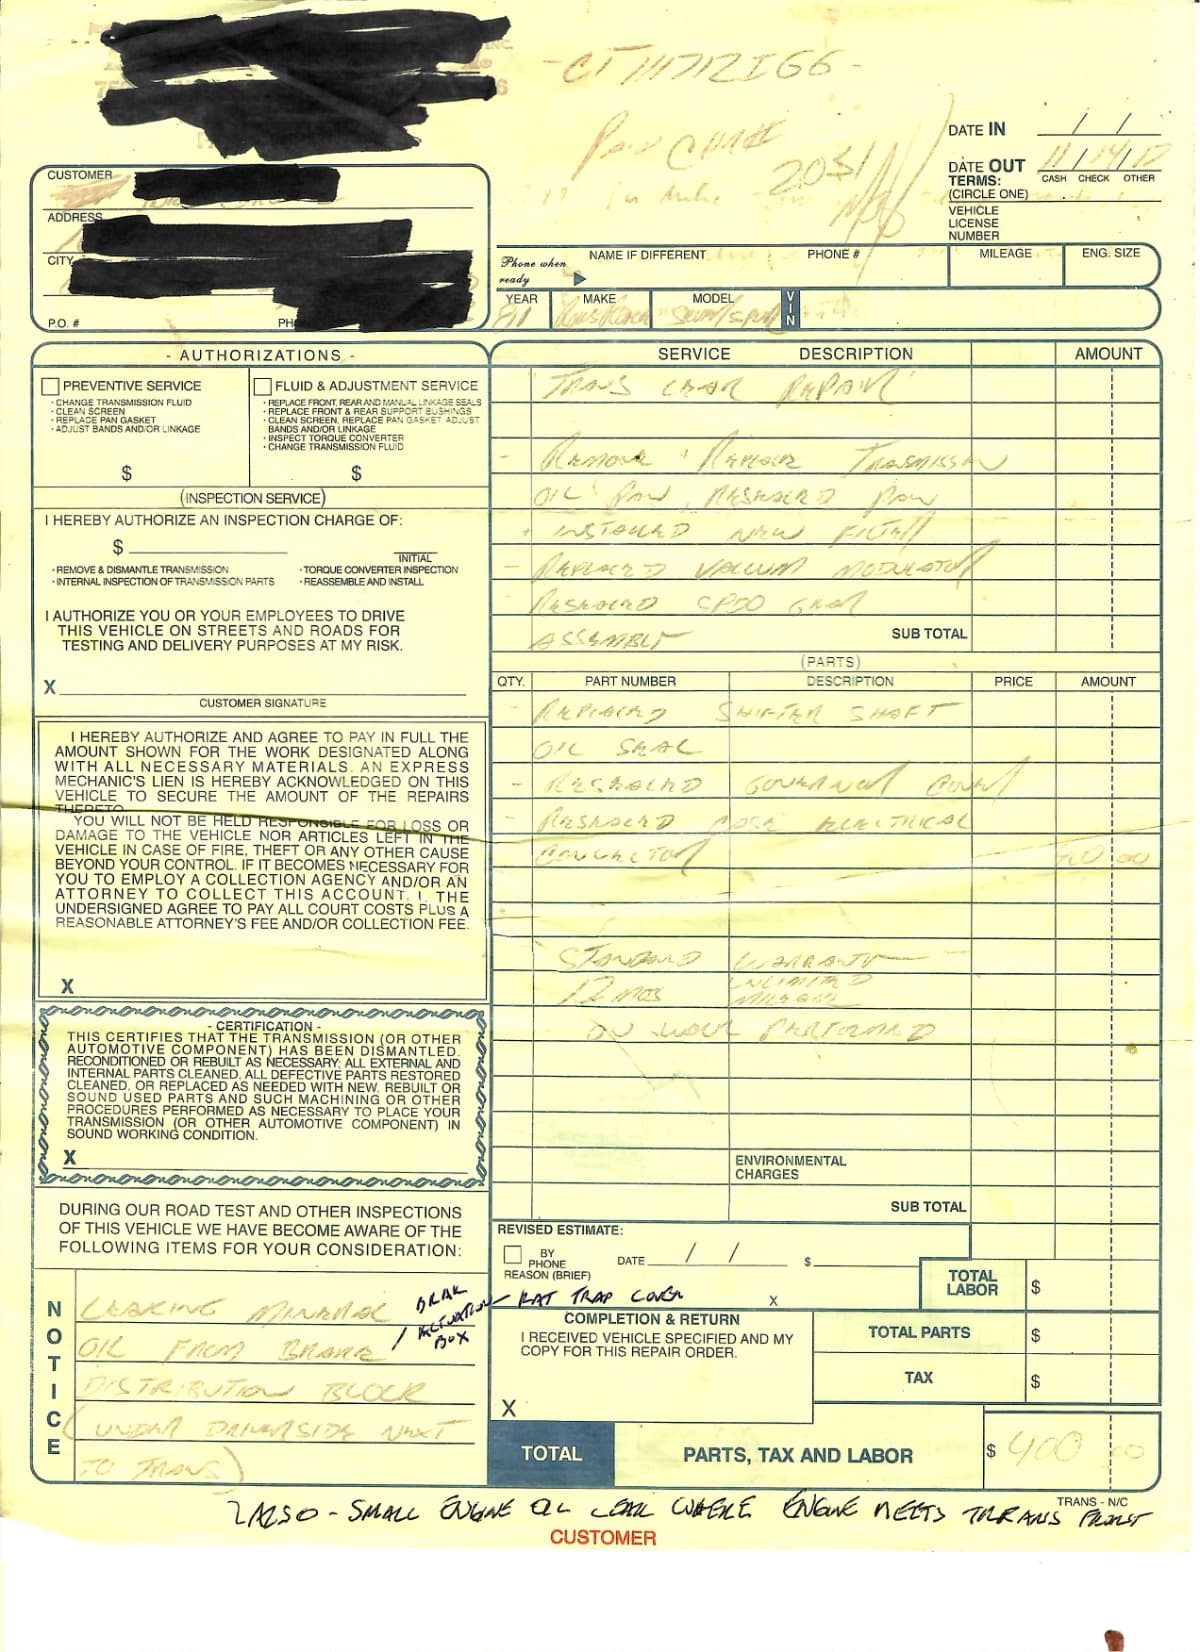 INC.
6
DATE IN / /
DATE OUT 11/14/17
TERMS: CASH CHECK OTHER
(CIRCLE ONE)
VEHICLE
LICENSE
NUMBER
CUSTOMER
ADDRESS
CITY
P.O. #
PH
2051
Phone when
ready
NAME IF DIFFERENT PHONE # MILEAGE ENG. SIZE
YEAR MAKE MODEL VIN
- AUTHORIZATIONS -
PREVENTIVE SERVICE
· CHANGE TRANSMISSION FLUID
· CLEAN SCREEN
· REPLACE PAN GASKET
· ADJUST BANDS AND/OR LINKAGE
$
FLUID & ADJUSTMENT SERVICE
· REPLACE FRONT, REAR AND MANUAL LINKAGE SEALS
· REPLACE FRONT & REAR SUPPORT BUSHINGS
· CLEAN SCREEN, REPLACE PAN GASKET ADJUST
BANDS AND/OR LINKAGE
· INSPECT TORQUE CONVERTER
· CHANGE TRANSMISSION FLUID
$
(INSPECTION SERVICE)
I HEREBY AUTHORIZE AN INSPECTION CHARGE OF:
$
INITIAL
· REMOVE & DISMANTLE TRANSMISSION · TORQUE CONVERTER INSPECTION
· INTERNAL INSPECTION OF TRANSMISSION PARTS · REASSEMBLE AND INSTALL
I AUTHORIZE YOU OR YOUR EMPLOYEES TO DRIVE
THIS VEHICLE ON STREETS AND ROADS FOR
TESTING AND DELIVERY PURPOSES AT MY RISK.
X
CUSTOMER SIGNATURE
I HEREBY AUTHORIZE AND AGREE TO PAY IN FULL THE
AMOUNT SHOWN FOR THE WORK DESIGNATED ALONG
WITH ALL NECESSARY MATERIALS. AN EXPRESS
MECHANIC'S LIEN IS HEREBY ACKNOWLEDGED ON THIS
VEHICLE TO SECURE THE AMOUNT OF THE REPAIRS
THERETO.
YOU WILL NOT BE HELD RESPONSIBLE FOR LOSS OR
DAMAGE TO THE VEHICLE NOR ARTICLES LEFT IN THE
VEHICLE IN CASE OF FIRE, THEFT OR ANY OTHER CAUSE
BEYOND YOUR CONTROL. IF IT BECOMES NECESSARY FOR
YOU TO EMPLOY A COLLECTION AGENCY AND/OR AN
ATTORNEY TO COLLECT THIS ACCOUNT, I, THE
UNDERSIGNED AGREE TO PAY ALL COURT COSTS PLUS A
REASONABLE ATTORNEY'S FEE AND/OR COLLECTION FEE.
X
- CERTIFICATION -
THIS CERTIFIES THAT THE TRANSMISSION (OR OTHER
AUTOMOTIVE COMPONENT) HAS BEEN DISMANTLED.
RECONDITIONED OR REBUILT AS NECESSARY; ALL EXTERNAL AND
INTERNAL PARTS CLEANED, ALL DEFECTIVE PARTS RESTORED
CLEANED, OR REPLACED AS NEEDED WITH NEW, REBUILT OR
SOUND USED PARTS AND SUCH MACHINING OR OTHER
PROCEDURES PERFORMED AS NECESSARY TO PLACE YOUR
TRANSMISSION (OR OTHER AUTOMOTIVE COMPONENT) IN
SOUND WORKING CONDITION.
X
DURING OUR ROAD TEST AND OTHER INSPECTIONS
OF THIS VEHICLE WE HAVE BECOME AWARE OF THE
FOLLOWING ITEMS FOR YOUR CONSIDERATION:
NOTICE
LEAKING MINERAL
OIL FROM BRAKE
DISTRIBUTION BLOCK
(UNDER DRIVERSIDE NEXT
TO TRANS)
BRAK
ACTUATION
BOX
- RAT TRAP COVER
SERVICE DESCRIPTION AMOUNT
TRANS LEAK REPAIR
- REMOVE + REPLACE TRASMISSION
OIL PAN, RESEALED PAN
+ INSTALLED NEW FILTER
- REPLACED VACUUM MODULATOR
RESEALED SPDO GEAR
ASSEMBLY
SUB TOTAL
(PARTS)
QTY. PART NUMBER DESCRIPTION PRICE AMOUNT
- REPLACED SHIFTER SHAFT
OIL SEAL
- RESEALED GOVERNOR COVER
- RESEALED CASE ELECTRICAL
CONNECTOR 400 00
STANDARD WARRANTY
12 MOS UNLIMITED
MILEAGE
ON WORK PERFORMED
ENVIRONMENTAL
CHARGES
SUB TOTAL
REVISED ESTIMATE:
BY
PHONE DATE / / $
REASON (BRIEF)
X
COMPLETION & RETURN
I RECEIVED VEHICLE SPECIFIED AND MY
COPY FOR THIS REPAIR ORDER.
X
TOTAL
LABOR $
TOTAL PARTS $
TAX $
TOTAL PARTS, TAX AND LABOR $ 400 00
TRANS - N/C
ALSO - SMALL ENGINE OIL LEAK WHERE ENGINE MEETS TRRANS FRONT
CUSTOMER